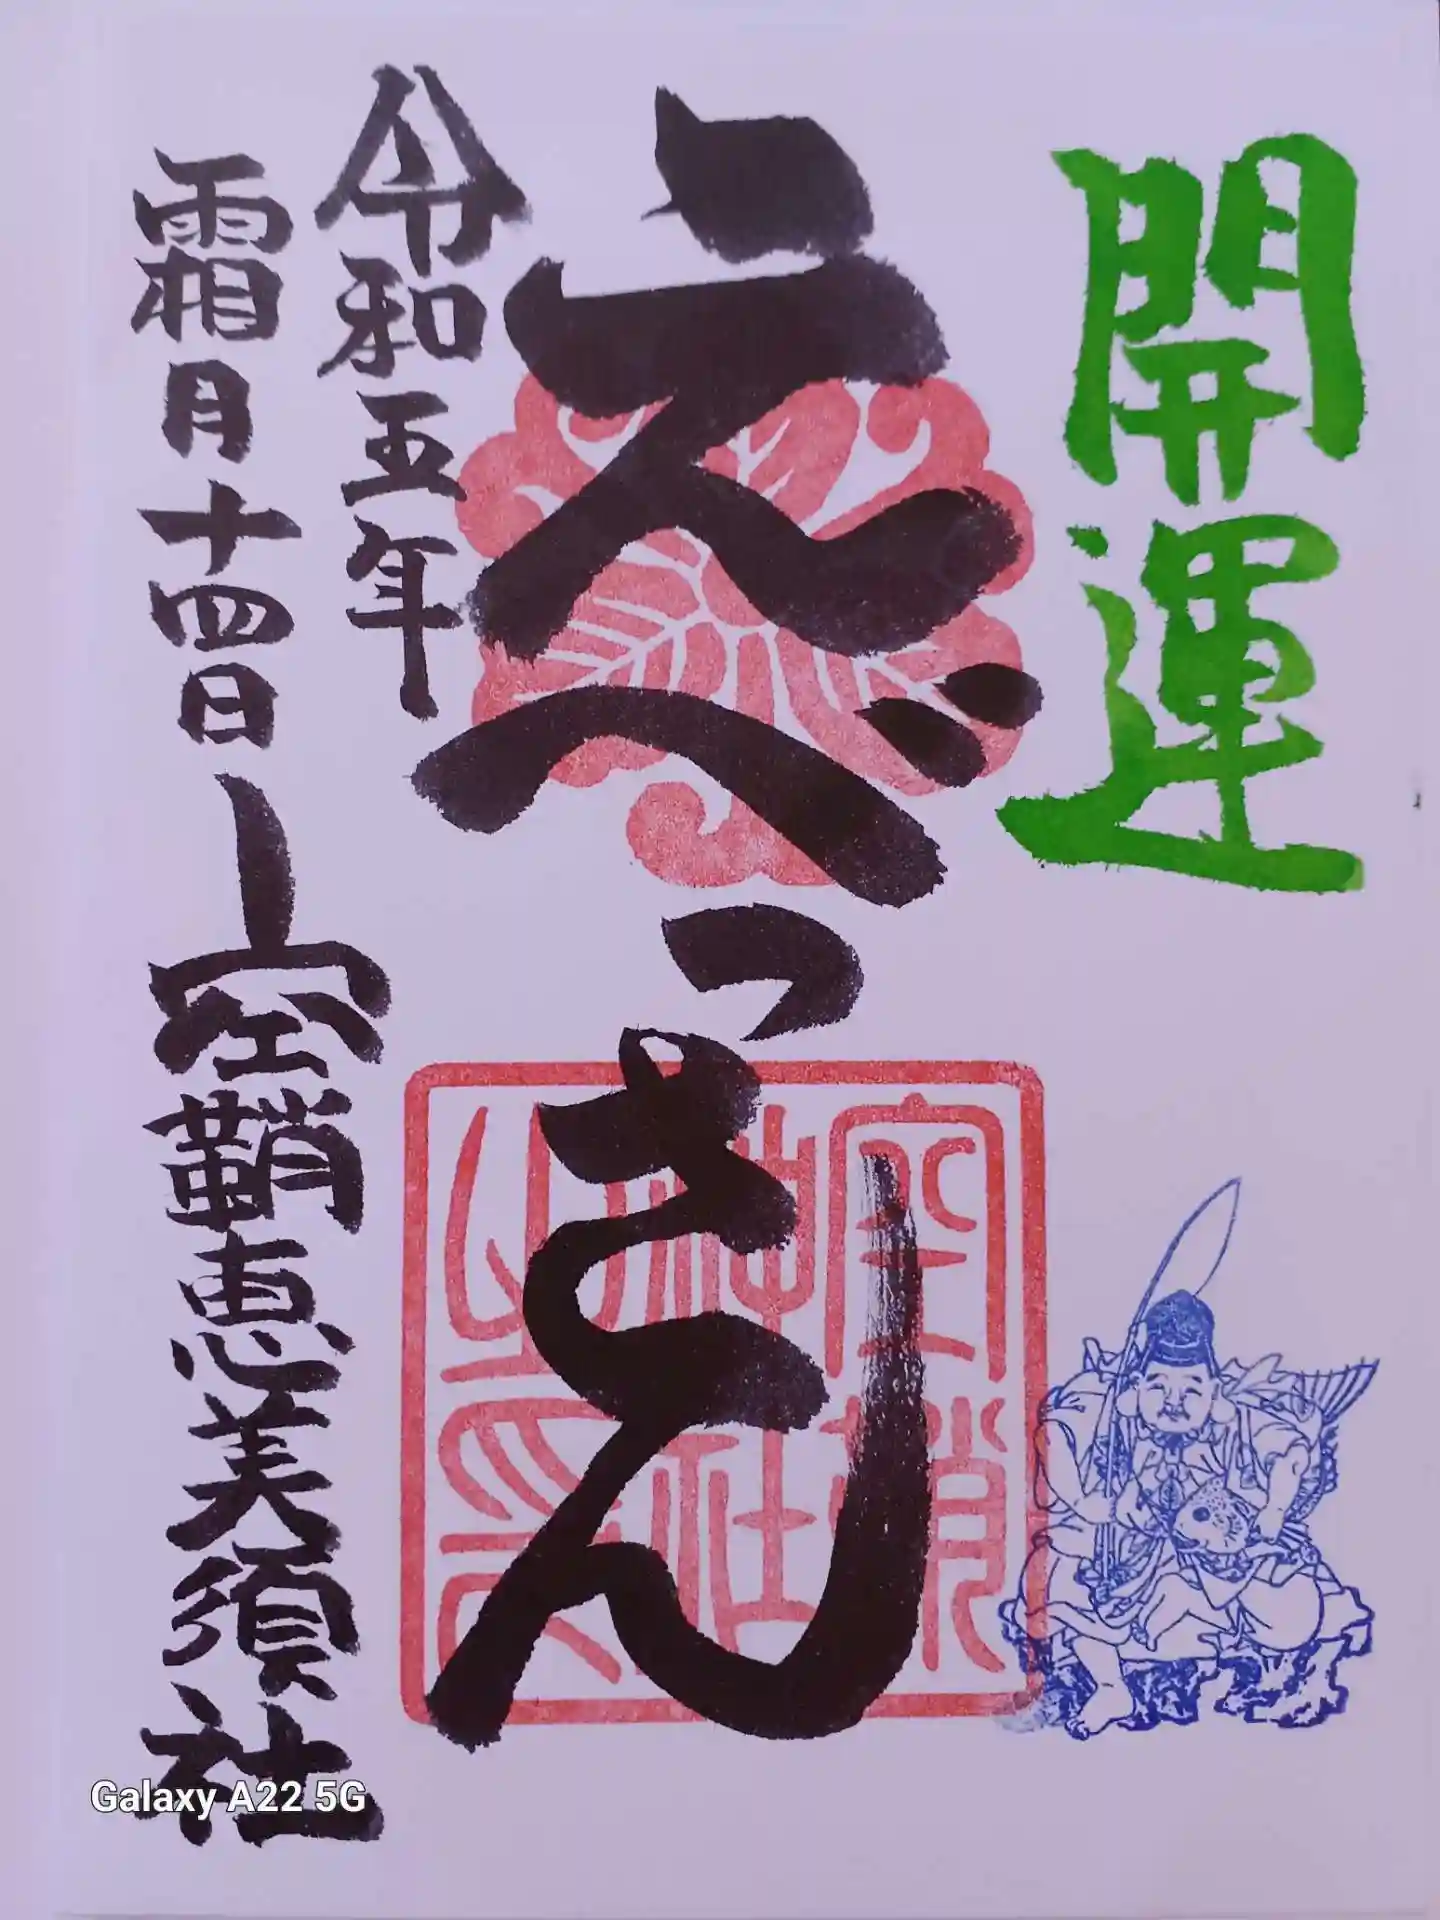 開運
えべっさん
令和五年
霜月十四日
空鞘恵美須社
空鞘
神社
之印
Galaxy A22 5G